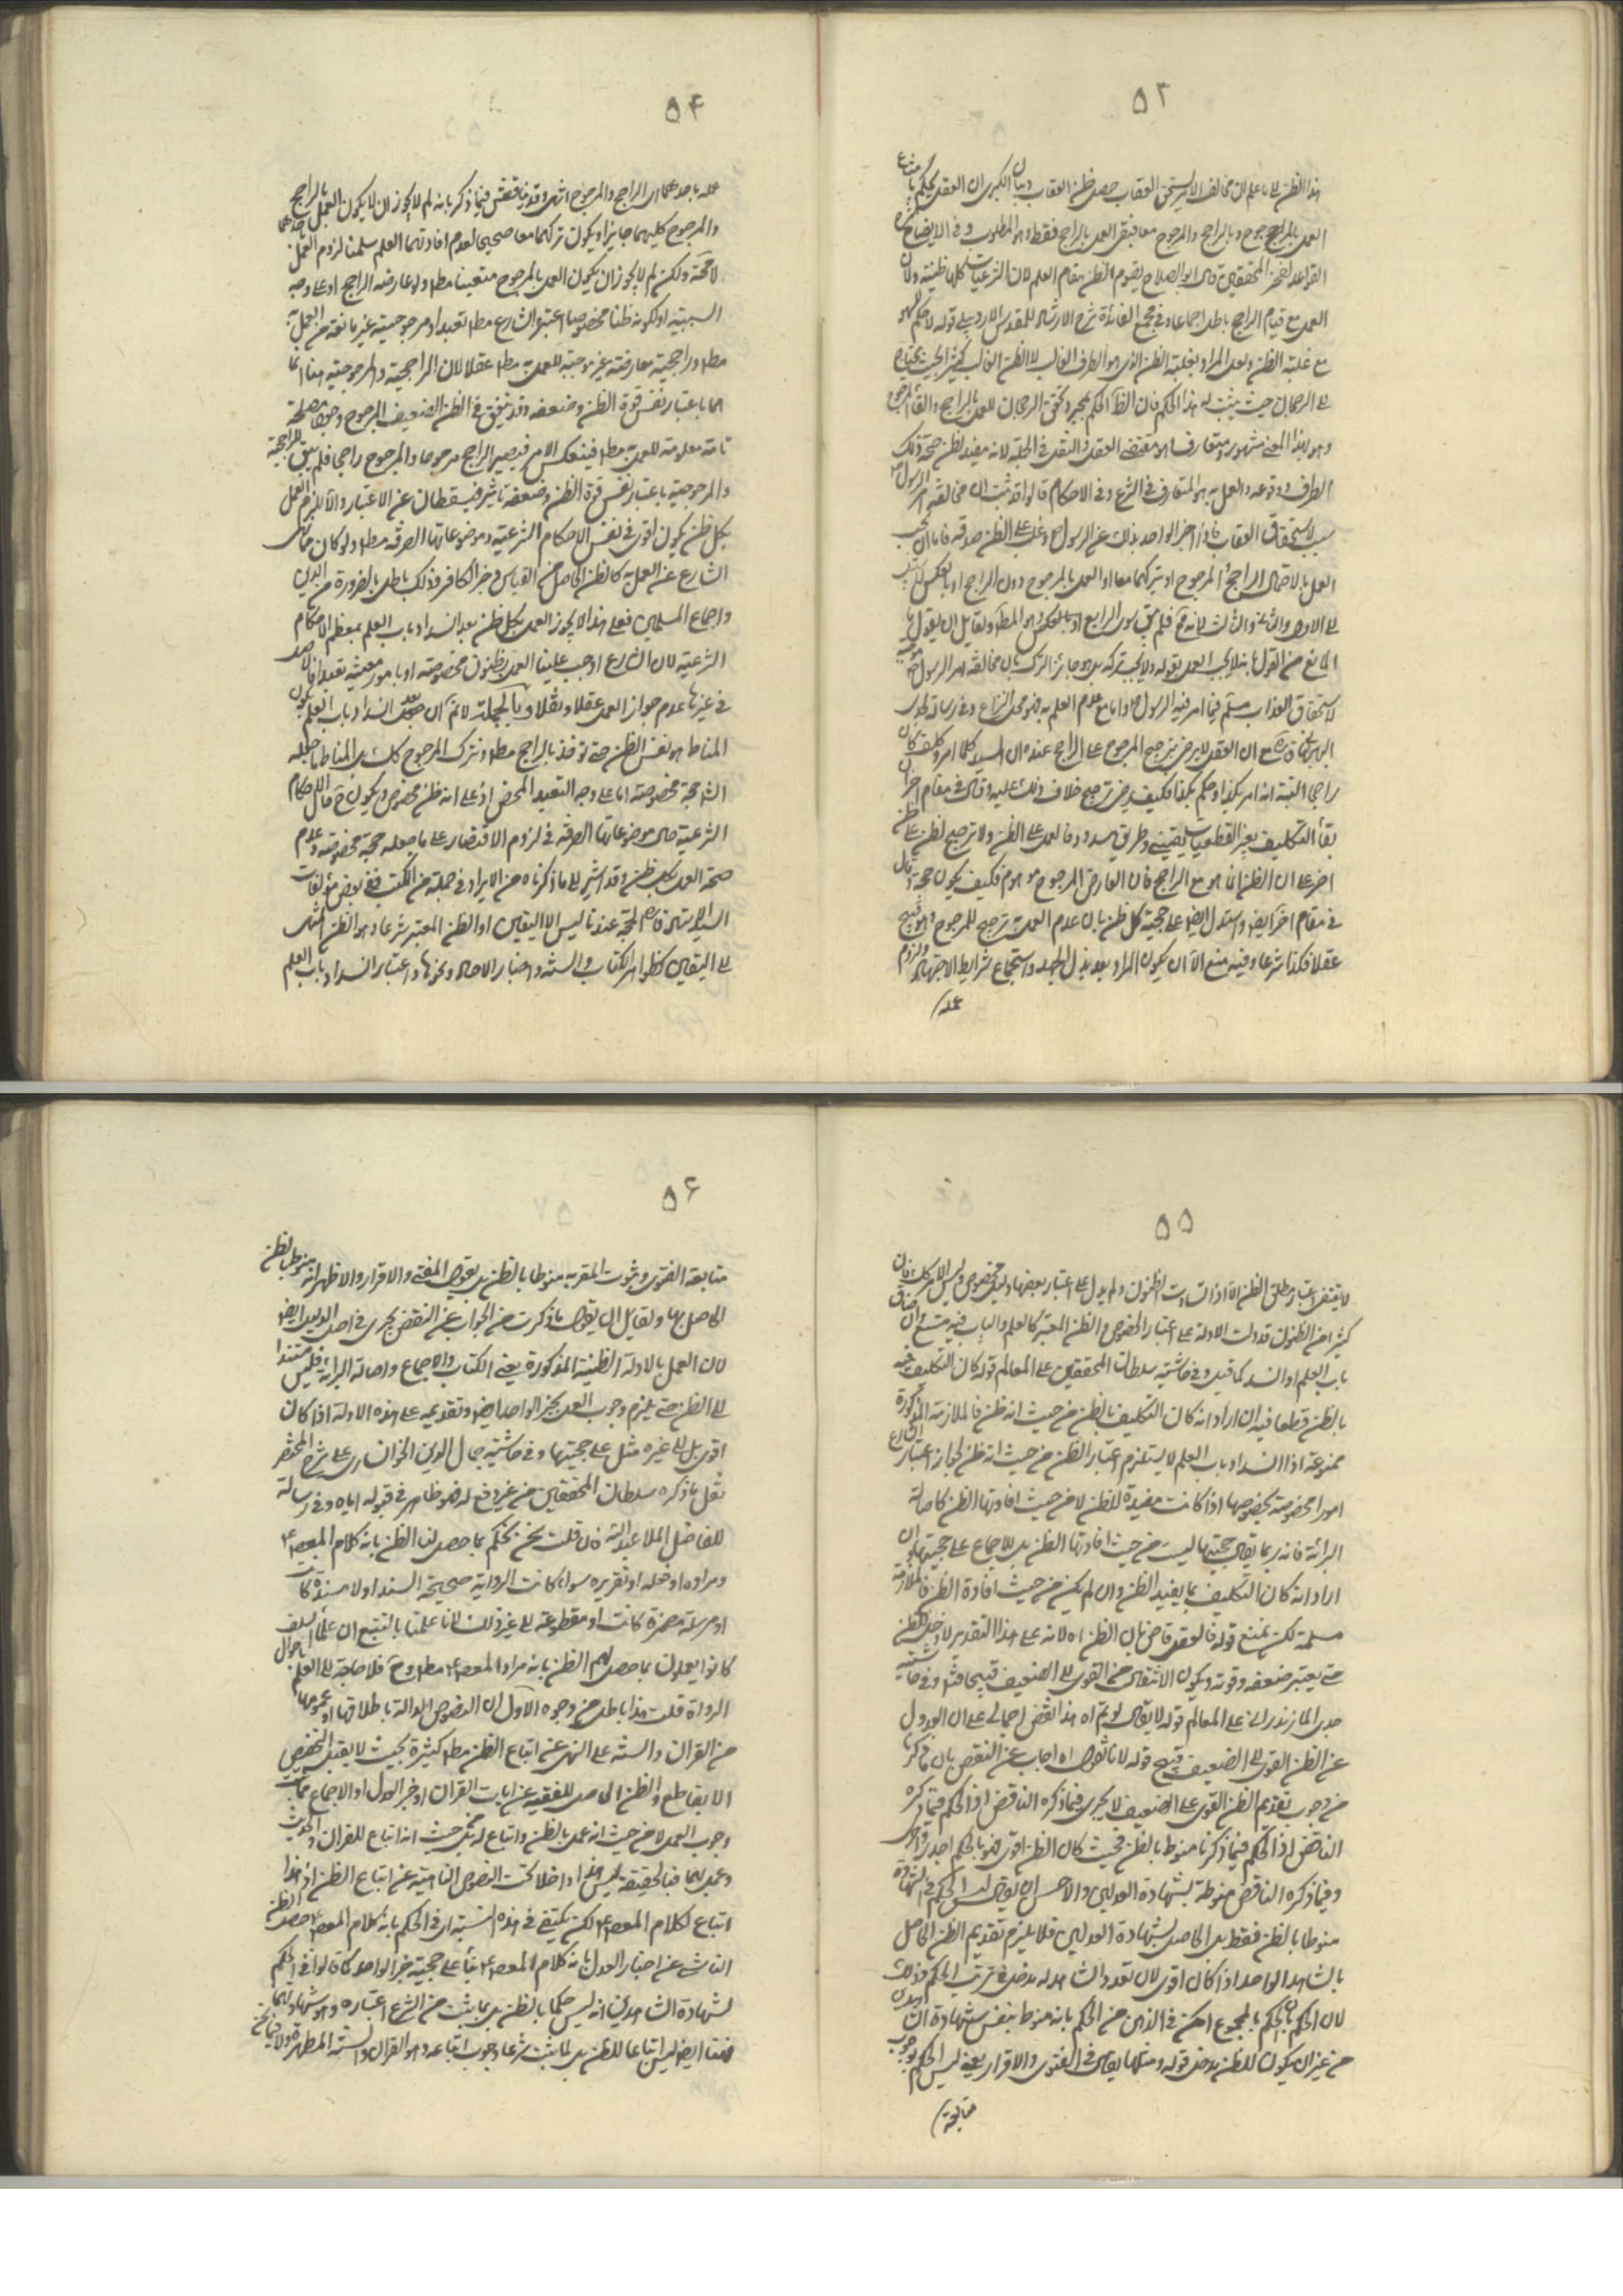 ۵۳
هذا الظن له باعلم ان مخالف الامر يستحق العقاب حصل ظن العقاب وبيان الكبرى ان العقل يحكم بامتناع
العمل بالمرجوح وبالراجح والمرجوح معا فبقى العمل بالراجح فقط وهو المطلوب وفى الايضاح
القواعد لفخر المحققين قال ابو الصلاح يقوم الظن مقام العلم لان الشرعيات كلها ظنية ولان
العمل مع قيام الراجح باطل اجماعا وفى مجمع الفائدة شرح الارشاد للمقدس الاردبيلى قوله لا حكم
مع غلبة الظن ولعل المراد بغلبة الظن الظن الذى هو الطرف الغالب لا الظن الغالب
الى الرجحان حيث يثبت له هذا الحكم فان الظاهر الحكم بمجرد تحقق الرجحان للعمل بالراجح والقاء المرجوح
وهو بهذا المعنى مشهور ومتعارف هو مقتضى العقل والنقل فى الجملة لانه مفيد لظن صحة ذلك
الطرف ووقوعه والعمل به هو المتعارف فى الشرع وفى الاحكام قالوا قد ثبت ان مخالفة امر الرسول
سبب لاستحقاق العقاب فاذا اخبر الواحد بذلك عن الرسول وغلب على الظن صدقه فاما ان يجب
العمل بالاحتمال الراجح والمرجوح او تركهما معا او العمل بالمرجوح دون الراجح او بالعكس لا سبيل
الى الاول والثانى والثالث لانه فلم يبق سوى الرابع او بالعكس وهو المطلوب ولقايل ان يقول ما
المانع من القول بانه لا يجب العمل بقوله ولا يجب تركه بل هو جائز الترك بان مخالفة امر الرسول موجبة
لاستحقاق العذاب مسلم فيما امر فيه الرسول واما مع عدم العلم به فهو محل النزاع وفى رسالة لمولى
البهبهانى قدس سره مع ان العقل لا يرضى بترجيح المرجوح على الراجح عنده ان السيد كلما امر وكلف كان
راجحا البتة انه امر بكذا وحكم بكذا فكيف يرضى بترجيح خلاف ذلك عليه وقال فى مقام اخر ان
بقاء التكليف بغير القطعيات يقينى وطريق مسدود فالعمل على الظن ولا ترجيح لظن على ظن
اخر على ان الظن انما هو مع الراجح فان العارض المرجوح موهوم فكيف يكون حجة وقال
فى مقام اخر ايضا واستدل ايضا على حجية كل ظن بان عدم العمل به ترجيح للمرجوح وهو قبيح
عقلا فكذا شرعا وفيه منع الا ان يكون المراد بعد بذل الجهد واستجماع شرايط الاجتهاد ولزوم
عمله
۵۴
عمله باحدهما اى الراجح والمرجوح انتهى وقد يناقش فيما ذكر بانه لم لا يجوز ان لا يكون العمل بالراجح
والمرجوح كليهما جايزا ويكون تركهما معا صحيحا لعدم افادتهما العلم سلمنا لزوم العمل باحدهما
لا محالة ولكن لم لا يجوز ان يكون العمل بالمرجوح متعينا مطلقا ولو عارضه الراجح او على وجه
السببية او لكونه ظنا مخصوصا اعتبره الشارع مطلقا تعبدا ومرجوحيته غير مانعة من العمل به
مطلقا وراجحية معارضته غير موجبة للعمل به مطلقا عقلا لان الراجحية والمرجوحية هنا انما
هما باعتبار نفس قوة الظن وضعفه وقد يتفق فى الظن الضعيف المرجوح وجود مصلحة
تامة معلومة للعمل به مطلقا فينعكس الامر فيصير الراجح مرجوحا والمرجوح راجحا فلم يبق للراجحية
والمرجوحية باعتبار نفس قوة الظن وضعفه تأثير فيسقطان عن الاعتبار والا لزم العمل
بكل ظن يكون اقوى فى نفس الاحكام الشرعية وموضوعاتها الصرفة مطلقا ولو كان مما نهى
الشارع عن العمل به كالظن الحاصل من القياس وخبر الكافر وذلك باطل بالضرورة من الدين
واجماع المسلمين فعلى هذا لا يجوز العمل بكل ظن بعد انسداد باب العلم بمعظم الاحكام
الشرعية لان الشارع اوجب علينا العمل بظنون مخصوصة او بامور معينة تعبدا فالاصل
فى غيرها عدم جواز العمل عقلا ونقلا وبالجملة لا نم ان بعد انسداد باب العلم يكون
المناط هو نفس الظن حتى نوخذ بالراجح مطلقا ونترك المرجوح كذلك بل المناط ما جعله
الشارع حجة مخصوصة اما على وجه التعبد المحض او على انه ظن مخصوص ويكون حال الاحكام
الشرعية حال موضوعاتها الصرفة فى لزوم الاقتصار على ما جعله حجة مخصوصة وعدم
صحة العمل بكل ظن وقد اشير الى ما ذكرناه من الايراد فى جملة من الكتب ففى بعض مؤلفات
السيد الاستاد قده الحجة عندنا ليس الا اليقين او الظن المعتبر شرعا وهو الظن المنتهى
الى اليقين كظواهر الكتاب والسنة واخبار الاحاد ونحوها واعتبار انسداد باب العلم
۵۵
لا يقتضى اعتبار مطلق الظن الا اذا تساوت الظنون ولم يدل على اعتبار بعضها دليل مخصوص وليس الامر كك فان
كثيرا من الظنون قد دلت الادلة على اعتبار الخصوص والظن المعتبر كالعلم والباب فيه متسع وان ضاق
باب العلم او انسد كما قيل وفى حاشية سلطان المحققين على المعالم قوله كان التكليف فيه
بالظن قطعا فيه ان اراد انه كان التكليف بالظن من حيث انه ظن فالملازمة المذكورة
ممنوعة اذا انسداد باب العلم لا يستلزم اعتبار الظن من حيث انه ظن لجواز اعتبار الشارع
امورا مخصوصة بخصوصها اذا كانت مفيدة للظن لا من حيث افادتها الظن كاصالة
البرائة فانه ربما يقال حجيتها ليست من حيث افادتها الظن بل للاجماع على حجيتها وان
اراد انه كان التكليف بما يفيد الظن وان لم يكن من حيث افادة الظن فالملازمة
مسلمة لكن نمنع قوله فالعقل قاض بان الظن اه لانه على هذا التقدير لا دخل للظن
حتى يعتبر ضعفه وقوته ويكون الانتقال من القوى الى الضعيف قبيحا فتدبر وفى حاشية
جدى المازندرانى على المعالم قوله لا يقال لو تم اه هذا نقض اجمالى على ان العدول
عن الظن القوى الى الضعيف قبيح قوله لانا نقول اه اجاب عن النقض بان ما ذكرنا
من وجوب تقديم الظن القوى على الضعيف لا يجرى فيما ذكره الناقض اذ الحكم فيما ذكره
الناقض اذ الحكم فيما ذكرنا منوط بالظن فحيث كان الظن اقوى فهو بالحكم اجدر واحرى
وفيما ذكره الناقض منوطة بشهادة العدلين والاحسن ان يقال ليس الحكم فى الشهادة
منوطا بالظن فقط بل الحاصل بشهادة العدلين فلا يلزم تقديم الظن الحاصل
بالشاهد الواحد اذا كان اقوى لان تعدد الشاهد له مدخل فى ترتب الحكم وذلك
لان الحكم بان الحكم بالمجموع امكن فى الذهن من الحكم بانه منوط بنفس شهادة العدلين
من غير ان يكون للظن مدخل قوله ومثلها يقال فى الفتوى والاقرار يعنى ليس الحكم بوجوب
متابعة
۵۶
متابعة الفتوى وثبوت المقر به منوطا بالظن بل بقول المفتى والاقرار والاظهر انه منوط بالظن
الحاصل بها ولقايل ان يقول ما ذكرت من الجواب عن النقض يجرى فى اصل الدليل ايضا
لان العمل بالادلة الظنية المذكورة يعنى الكتاب والاجماع واصالة البراءة فليس مستندا
الى الظن حتى يلزم وجوب العمل بخبر الواحد ايضا وتقديمه على هذه الادلة اذا كان
اقوى بل الى غيره مثل على حجيتها وفى حاشية جمال الدين الخوانسارى على شرح المختصر
نقل ما ذكره سلطان المحققين من غير دفع له فهو ظاهر فى قبوله اياه وفى رسالة
للفاضل الملا عبد الله فان قلت نحن نحكم بما حصل لنا الظن بانه كلام المعصوم ع
ومراده او فعله او تقريره سواء كانت الرواية صحيحة السند او لا مسندة كانت
او مرسلة مضمرة كانت او مقطوعة الى غير ذلك لانا علمنا بالتتبع ان علماء السلف
كانوا يعملون بما حصل لهم الظن بانه مراد المعصوم ع مطلقا وح فلا حاجة الى العلم باحوال
الرواة قلت هذا باطل من وجوه الاول ان النصوص الدالة باطلاقها او عمومها
من القران والسنة على النهى عن اتباع الظن مطلقا كثيرة بحيث لا يقبل التخصيص
الا بقاطع والظن الحاصل للفقيه عن ايات القران او خبر العدل او الاجماع مما ثبت
وجوب العمل لا من حيث انه عمل بالظن واتباع له بل من حيث انه اتباع للقران والحديث
وعمل بهما ففى الحقيقة ليس هذا داخلا تحت النصوص الناهية عن اتباع الظن اذ هذا
اتباع لكلام المعصوم ع لكن يكتفى فى هذه النسبة اى فى الحكم بانه كلام المعصوم ع حصول الظن
الناشى عن اخبار العدل بانه كلام المعصوم ع بناء على حجية خبر الواحد كما قالوا فى الحكم
لشهادة الشاهدين انه ليس حكما بالظن بل بما ثبت من الشرع اعتباره وهو شهادتهما
فهنا ايضا ليس اتباعا للظن بل لما ثبت شرعا وجوب اتباعه وهو القران والسنة المطهرة